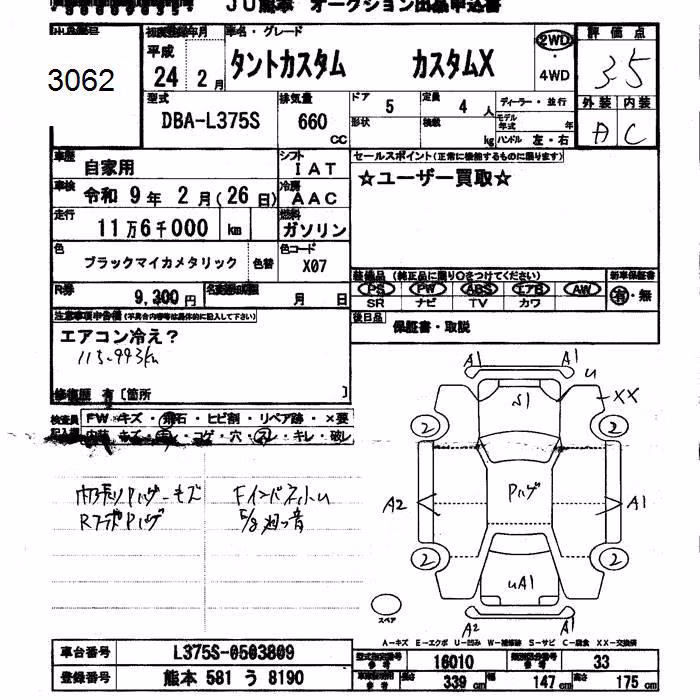 JU熊本 オークション出品申込書
3062
初度登録年月
平成
24 2月
車名・グレード
タントカスタム カスタムX
2WD
・
4WD
評価点
3.5
外装 内装
A C
型式
DBA-L375S
排気量
660
cc
ドア
5
定員
4 人
形状
積載
kg
ディーラー・並行
モデル年式 年
ハンドル 左・右
車歴
自家用
シフト
IAT
車検
令和 9年 2月(26日)
冷房
AAC
走行
11万6千000 km
燃料
ガソリン
色
ブラックマイカメタリック 色替
色コード
X07
R券
9,300円
月 日
セールスポイント(正常に機能するものに限ります)
☆ユーザー買取☆
装備品 (純正品に限り○をつけてください)
PS PW ABS エアB AW
SR ナビ TV カワ
新車保証書
有・無
後日品
保証書・取説
注意事項申告欄(不具合内容等は具体的に記入して下さい)
エアコン冷え?
115.993km
修復歴 有[箇所 ]
検査員
記入欄
FW キズ・飛石・ヒビ割・リペア跡・×要
内装 キズ・汚・コゲ・穴・スレ・キレ・破レ
内張りPハゲ・キズ
Fインドネ小U
A1 A1
U
S1
XX
2 2
A2 Pハゲ A1
2 2
UA1
A2 A1
スペア
A-キズ E-エクボ U-凹み W-補修跡 S-サビ C-腐食 XX-交換済
車台番号
L375S-0503809
登録番号
熊本 581 う 8190
型式指定番号
参考
16010
類別区分番号
参考
33
長さ 339 cm
幅 147 cm
高さ 175 cm